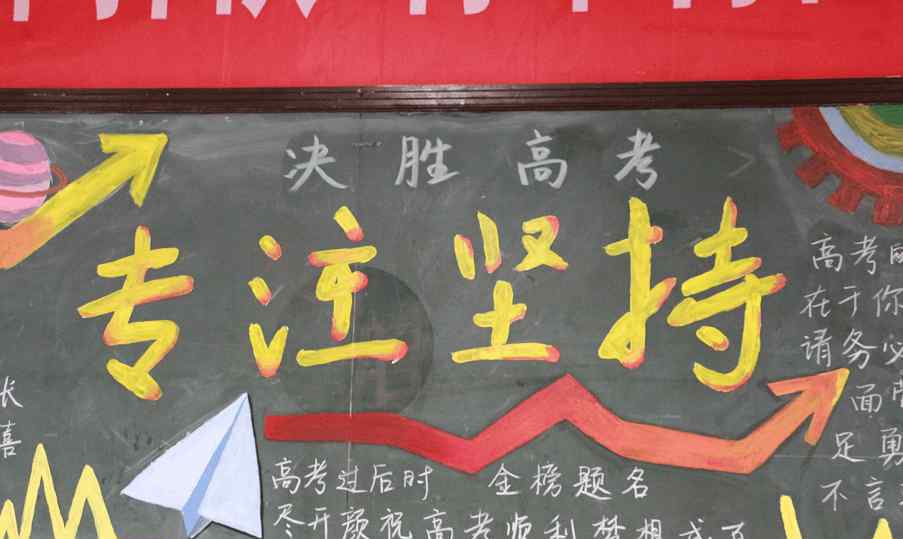 决胜高考
专注坚持
高考
在于你
请务必
面
足勇
不言
长
喜
高考过后时 金榜题名
尽开颜祝高考顺利梦想成